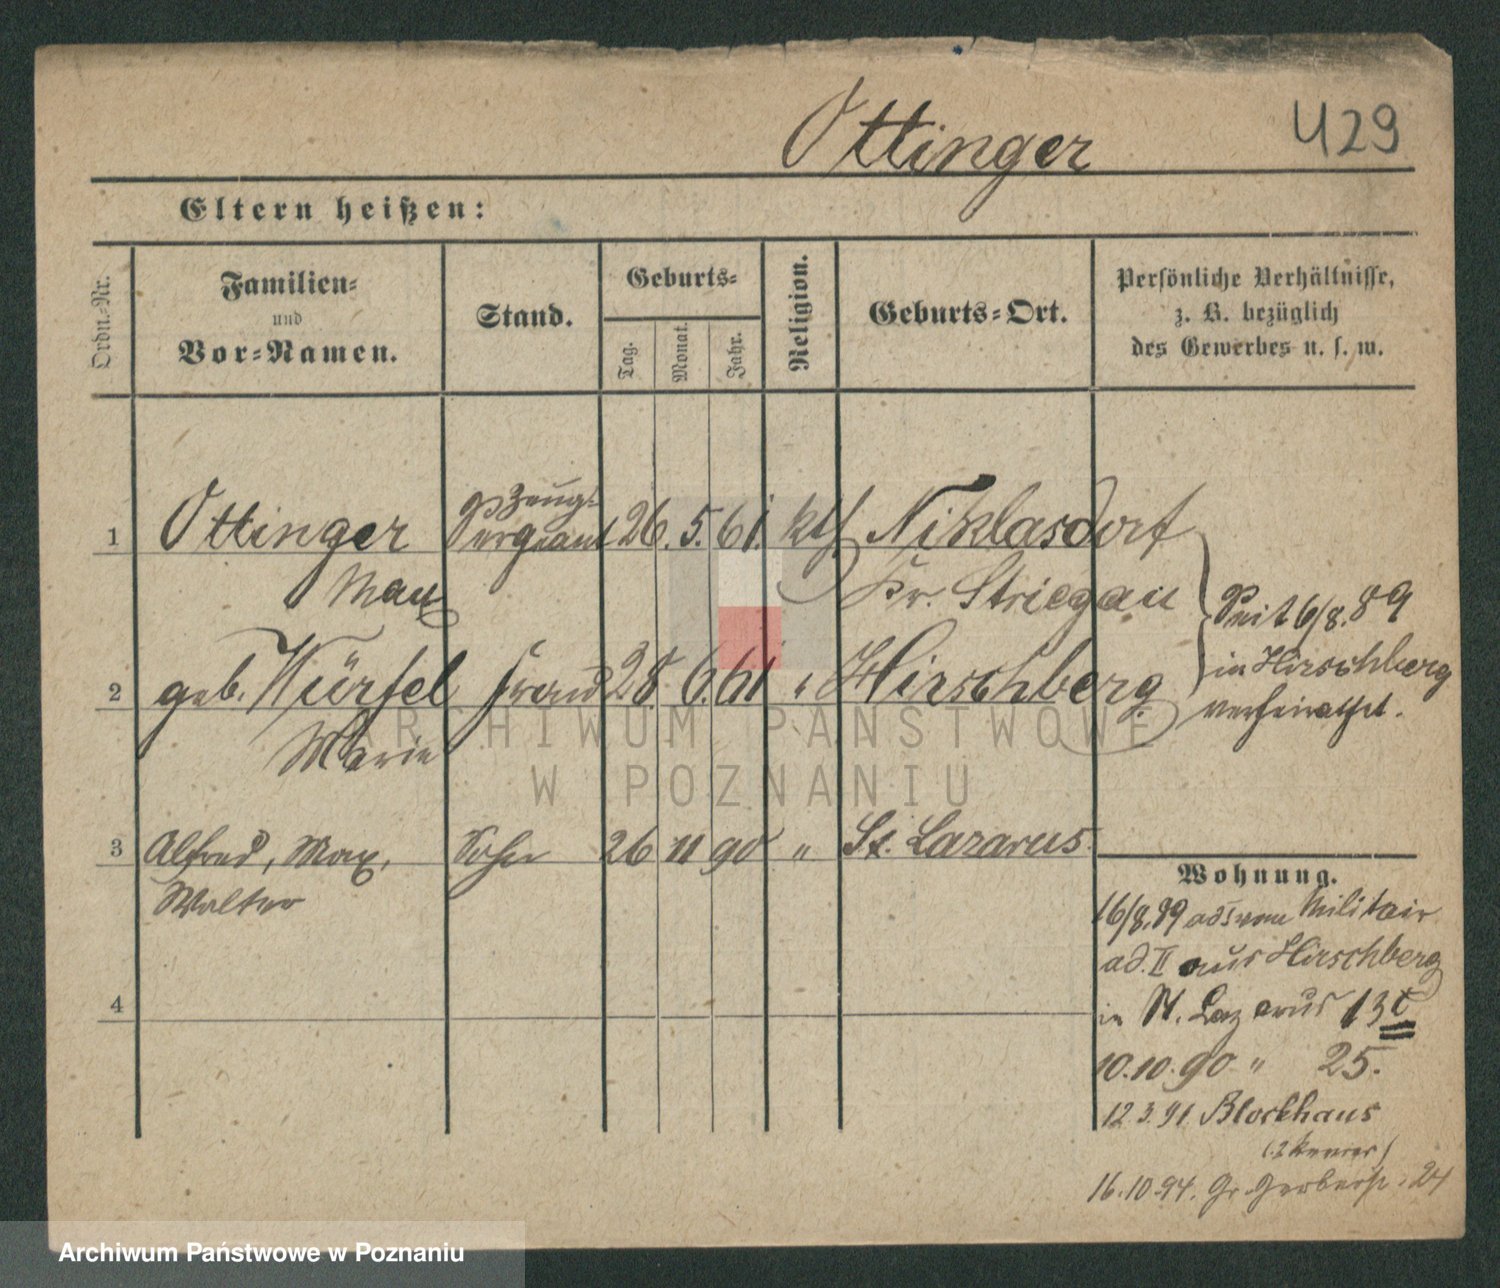 Ottinger
429
Eltern heißen:
Ordn.-Nr.
Familien-
und
Vor-Namen.
Stand.
Geburts-
Tag.
Monat.
Jahr.
Religion.
Geburts-Ort.
Persönliche Verhältnisse,
z. B. bezüglich
des Gewerbes u. s. w.
1 Ottinger Zeug- Sergeant 26. 5. 61. kth Niklasdorf
Max Kr. Striegau
2 geb. Würfel Frau 28. 6. 61 " Hirschberg
Marie
Seit 6/8. 89
in Hirschberg
verheirathet.
3 Alfred, Max, Sohn 26 11 90 " St. Lazarus.
Walter
4
Wohnung.
16/8. 89 ad I vom Militair
ad. II aus Hirschberg
in St. Lazarus 13c
10.10.90 " 25.
12.3.91. Blockhaus
16.10.94. Gr. Gerberstr. 24
ARCHIWUM PAŃSTWOWE
W POZNANIU
Archiwum Państwowe w Poznaniu